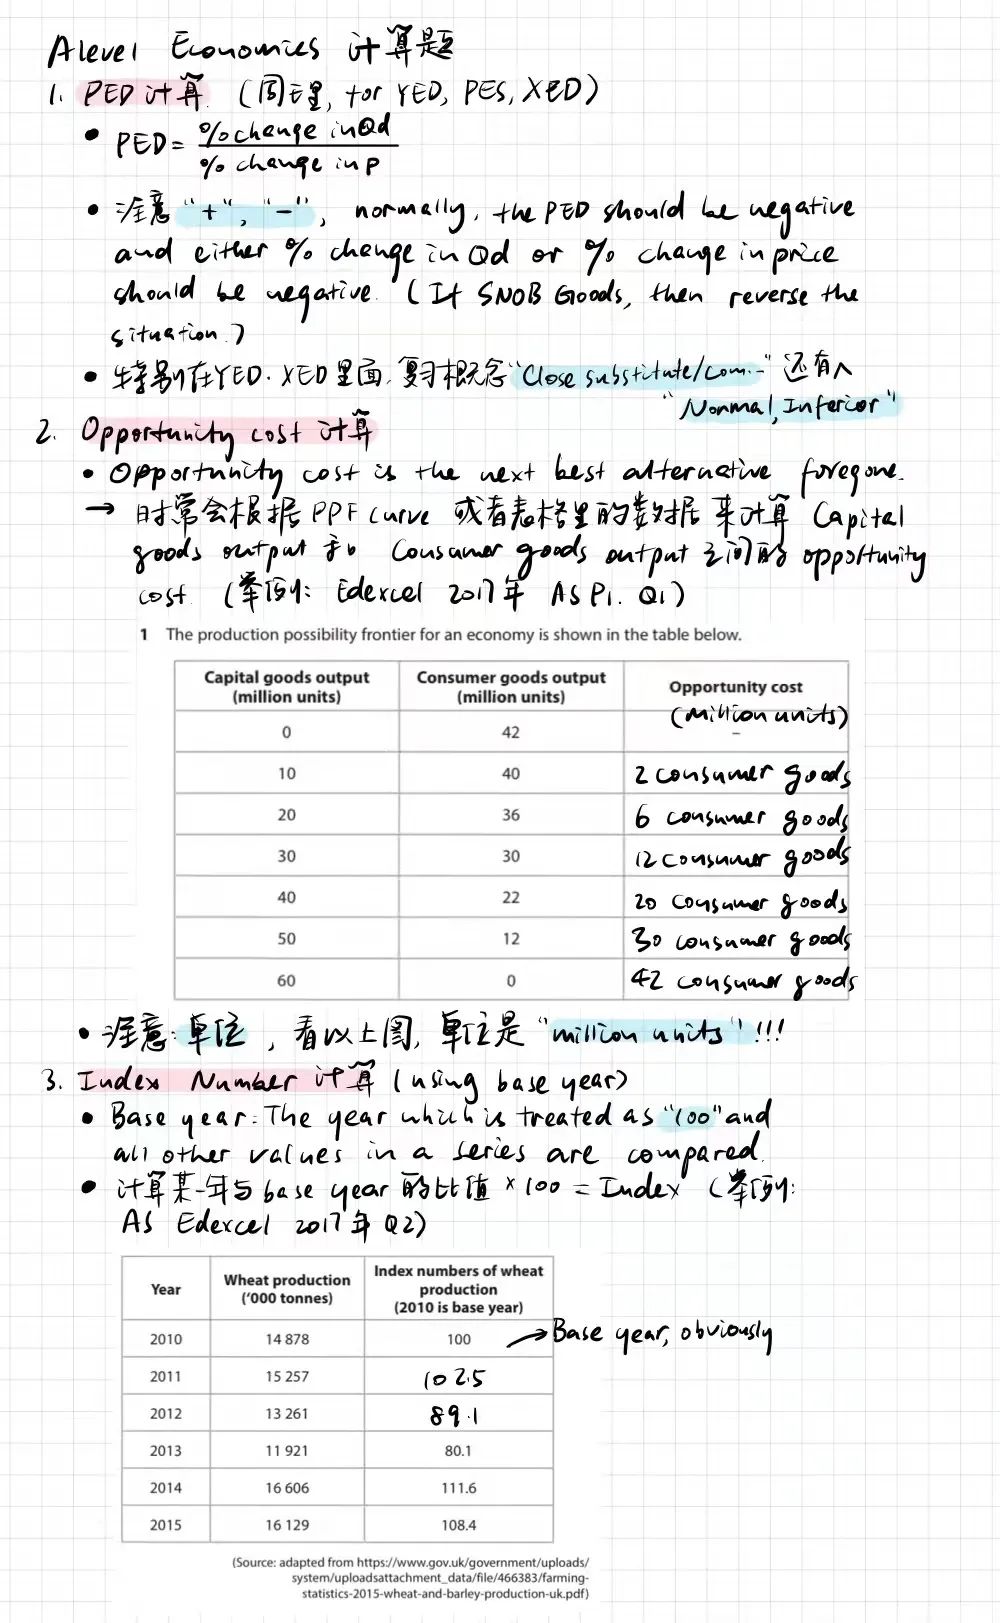 Alevel Economics 计算题
1. PED 计算. (同理, for YED, PES, XED)
• PED = %change in Qd / % change in P
• 注意 "+", "-", normally, the PED should be negative
and either % change in Qd or % change in price
should be negative. (If SNOB Goods, then reverse the
situation.)
• 特别在YED. XED里面, 复习概念 "Close substitute/com.-" 还有
"Normal, Inferior"
2. Opportunity cost 计算
• Opportunity cost is the next best alternative foregone.
→ 时常会根据 PPF curve 或者表格里的数据来计算 Capital
goods output 和 Consumer goods output 之间的 opportunity
cost. (举例: Edexcel 2017年 AS P1. Q1)
1 The production possibility frontier for an economy is shown in the table below.
Capital goods output (million units) Consumer goods output (million units) Opportunity cost (million units)
0 42 –
10 40 2 consumer goods
20 36 6 consumer goods
30 30 12 consumer goods
40 22 20 consumer goods
50 12 30 consumer goods
60 0 42 consumer goods
• 注意: 单位, 看以上图, 单位是 "million units" !!!
3. Index Number 计算 (using base year)
• Base year: The year which is treated as "100" and
all other values in a series are compared.
• 计算某一年与 base year 的比值 × 100 = Index (举例:
AS Edexcel 2017年 Q2)
Year Wheat production ('000 tonnes) Index numbers of wheat production (2010 is base year)
2010 14 878 100 → Base year, obviously
2011 15 257 102.5
2012 13 261 89.1
2013 11 921 80.1
2014 16 606 111.6
2015 16 129 108.4
(Source: adapted from https://www.gov.uk/government/uploads/
system/uploadsattachment_data/file/466383/farming-
statistics-2015-wheat-and-barley-production-uk.pdf)